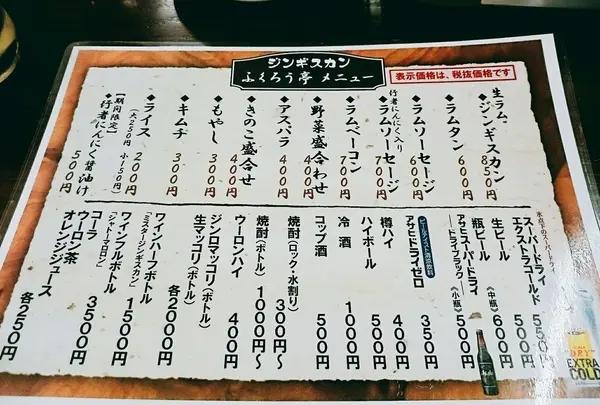 ジンギスカン
ふくろう亭 メニュー
表示価格は、税抜価格です
生ラム、
◆ジンギスカン 850円
◆ラムタン 600円
◆ラムソーセージ 600円
行者にんにく入り
ラムソーセージ 700円
◆ラムベーコン 700円
◆野菜盛合わせ 400円
◆アスパラ 400円
◆きのこ盛合せ 400円
◆もやし 300円
◆キムチ 300円
◆ライス 200円
(大250円 小150円)
【期間限定】
◆行者にんにく醤油け 500円
氷点下のスーパードライ
スーパードライ
エクストラコールド 550円
生ビール 500円
瓶ビール (中瓶) 600円
アサヒスーパードライ
ドライブラック (小瓶) 500円
ビールテイスト清涼飲料
アサヒドライゼロ 350円
樽ハイ 400円
ハイボール 500円
冷酒 1000円
コップ酒 500円
焼酎(ロック・水割り) 300円〜
焼酎(ボトル) 1000円〜
ウーロンハイ 400円
ジンロマッコリ(ボトル)
生マッコリ(ボトル) 各2000円
ワインハーフボトル
「ミスタージンギスカン」 1500円
ワインフルボトル
「シャトーマロン」 3500円
コーラ
ウーロン茶
オレンジジュース 各250円
DRY
EXTRA
COLD